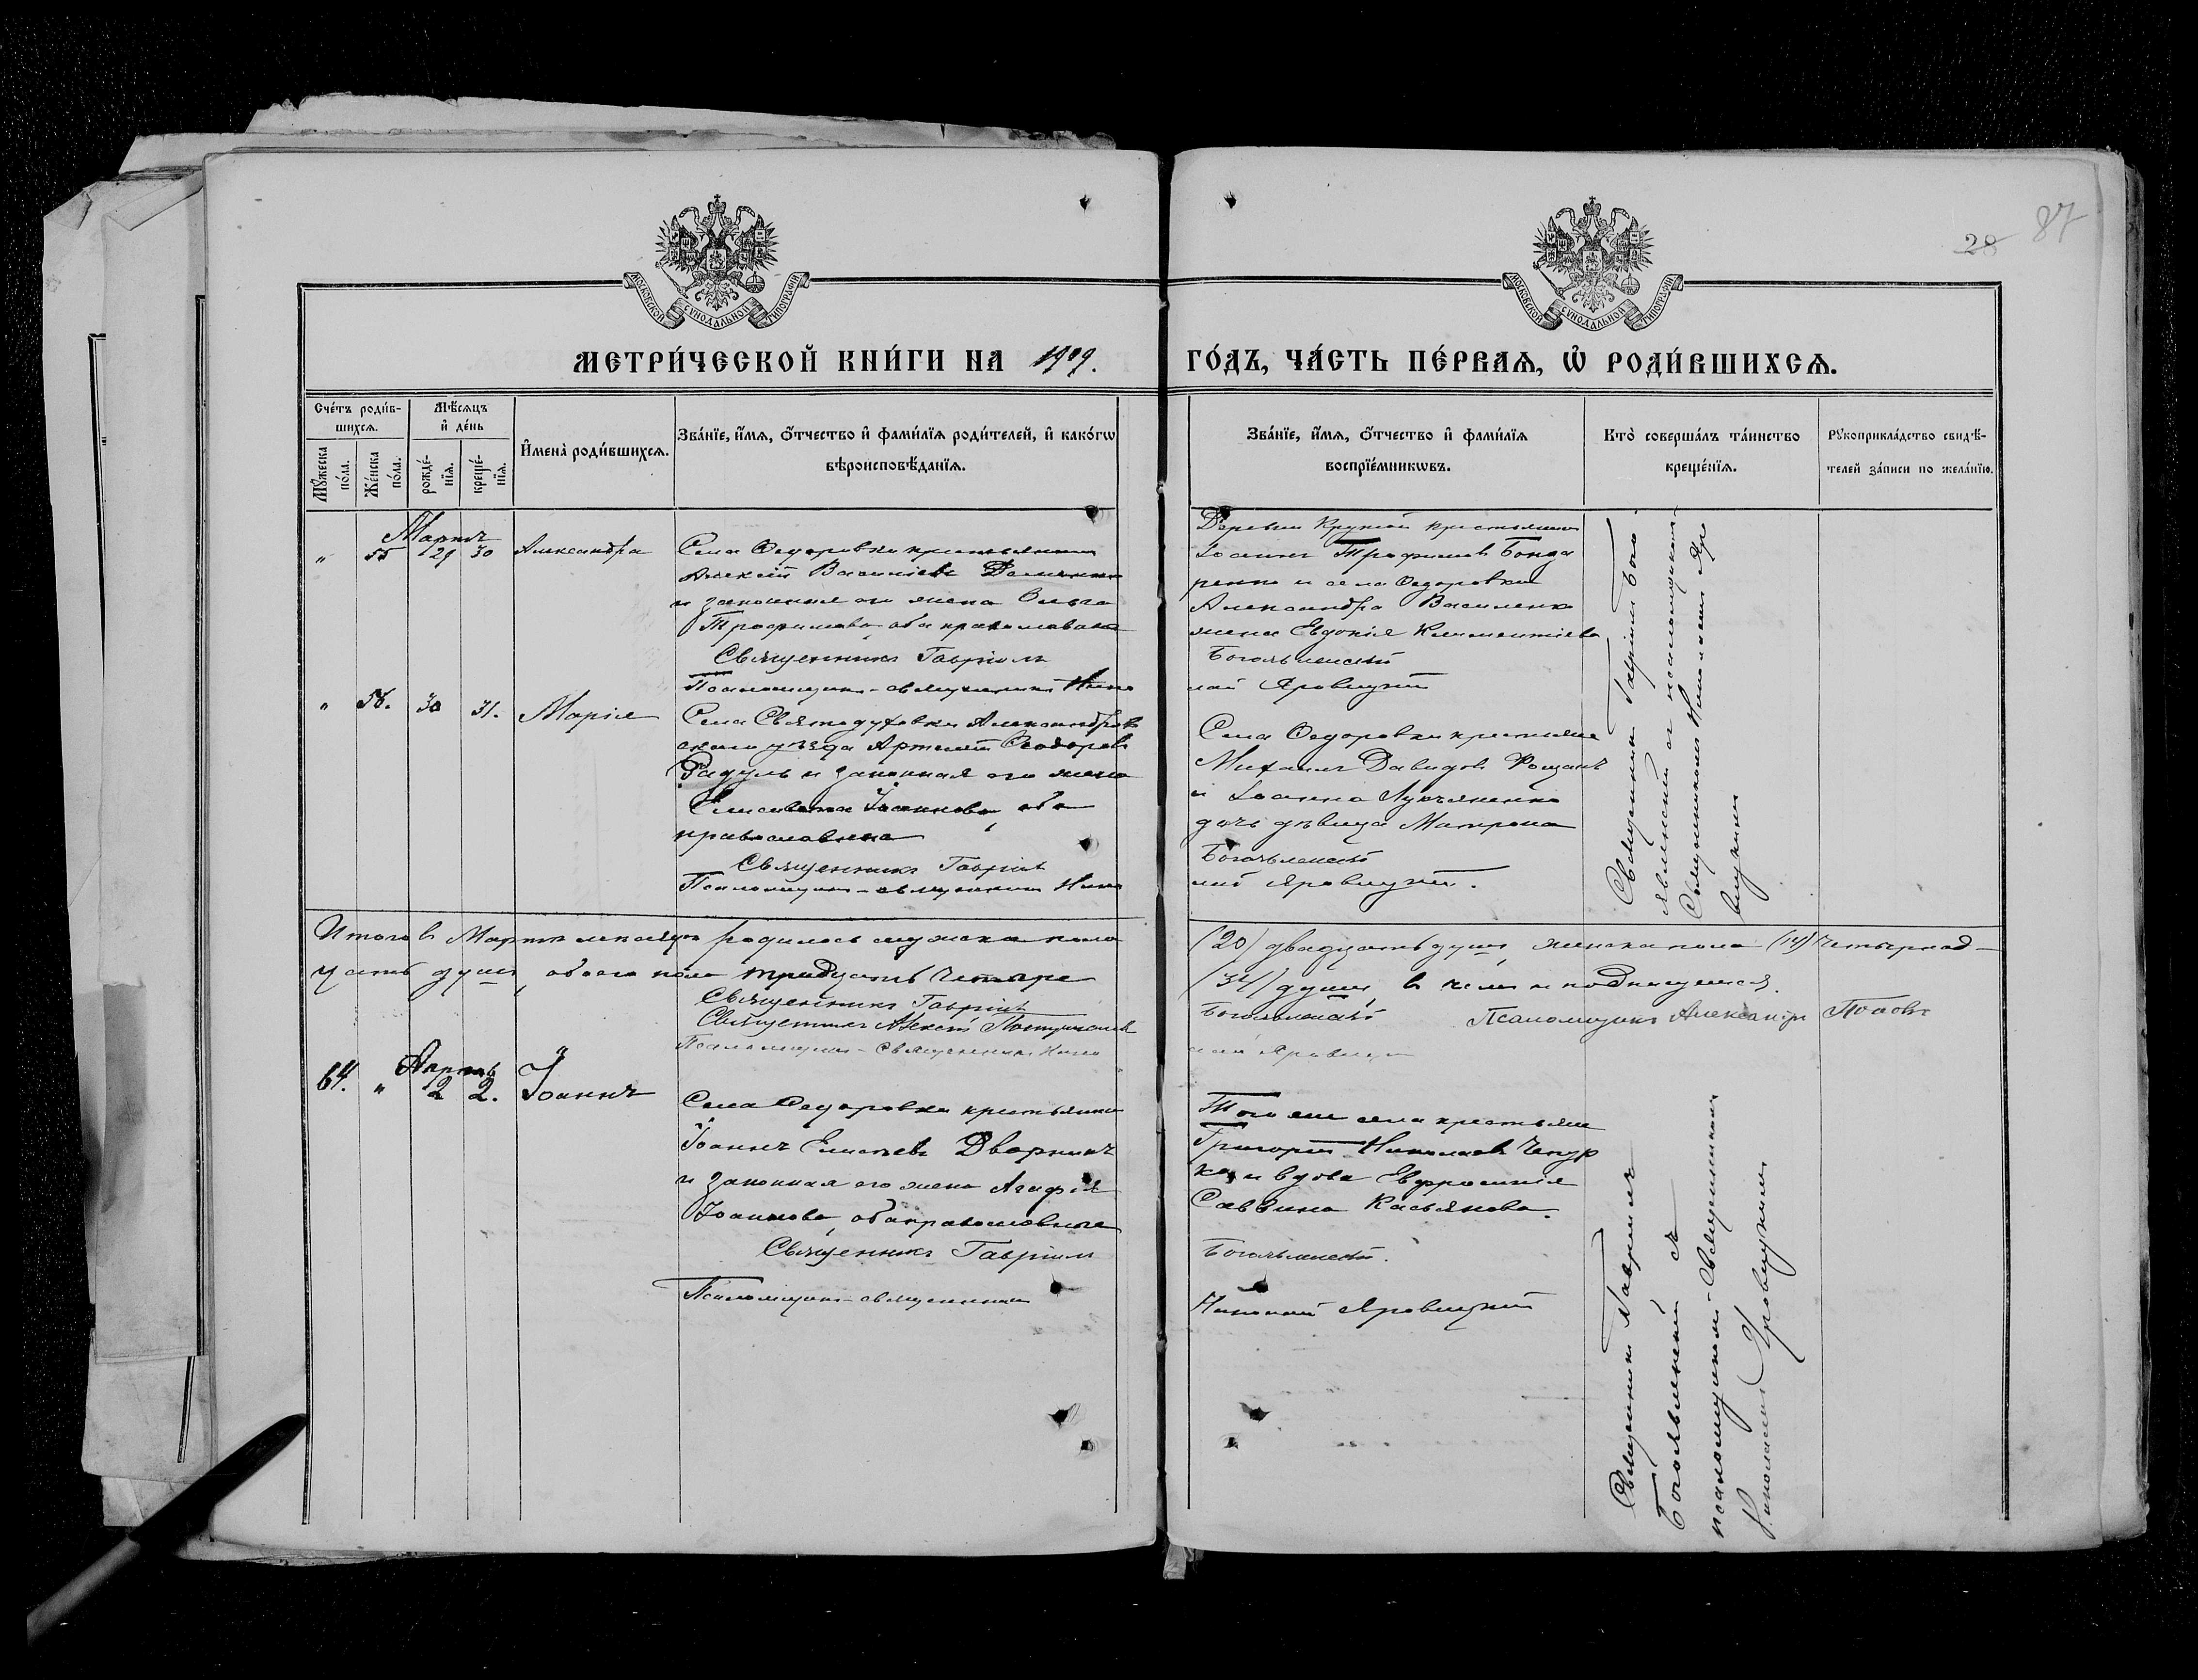 28 87
МОСКОВСКОЙ СѴНОДАЛЬНОЙ ТИПОГРАФІИ
МОСКОВСКОЙ СѴНОДАЛЬНОЙ ТИПОГРАФІИ
МЕТРИ́ЧЕСКОЙ КНИ́ГИ НА 1909. ГО́ДЪ, ЧА́СТЬ ПЕ́РВАѦ, Ѽ РОДИ́ВШИХСѦ.
Сче́тъ роди́в-
шихсѧ.
Мꙋ́жеска по́ла.
Же́нска по́ла.
Мѣ́сѧцъ
и҆ де́нь
рожде́-
нїѧ.
креще́-
нїѧ.
И҆мена̀ роди́вшихсѧ.
Зва́нїе, и҆́мѧ, о҆́тчество и҆ фами́лїѧ роди́телей, и҆ како́гѡ
вѣроисповѣ́данїѧ.
Зва́нїе, и҆́мѧ, о҆́тчество и҆ фами́лїѧ
воспрїе́мникѡвъ.
Кто̀ соверша́лъ та́инство
креще́нїѧ.
Рꙋкоприкла́дство свидѣ́-
телей за́писи по жела́нїю.
Мартъ
" 55 29 30 Александра
Села Ѳедоровки крестьянинъ
Алексій Васильевъ
и законная его жена Ольга
Трофимова, оба православные
Священникъ Гавріилъ
Псаломщикъ-священникъ Нико
Деревни Крутой крестьянинъ
Іоаннъ Трофимовъ Бонда
ренко и села Ѳедоровки
Александра Василенко
жена Евдокія Климентіева
Богоявленскій
лай Яровицкій
Священникъ Гавріилъ Бого
явленскій съ псаломщикомъ
Священникомъ Николаемъ Яро
вицкимъ
" 56. 30 31. Марія
Села Святодуховки Александров
скаго уѣзда Артемій Ѳеодоровъ
Радуль и законная его жена
Елисавета Іоаннова, оба
православные
Священникъ Гавріилъ
Псаломщикъ-священникъ Нико
Села Ѳедоровки крестьяне
Михаилъ Давидовъ Рощанъ
и Іоанна Лукьяненко
дочь дѣвица Матрона
Богоявленскій
лай Яровицкій.
Итого въ Мартѣ мѣсяцѣ родилось мужска пола (20) двадцать душъ, женска пола (14) четырнад-
цать душъ, обоего пола тридцать четыре (34) души, въ чемъ и подпишемся.
Священникъ Гавріилъ Богоявленскій Псаломщикъ Александръ Поповъ
Священникъ Алексій
Псаломщикъ-Священникъ Нико лай Яровицкій
Апрѣль
64. " 2 2. Іоаннъ
Села Ѳедоровки крестьянинъ
Іоаннъ Елисѣевъ Дворникъ
и законная его жена Агафія
Іоаннова, оба православные
Священникъ Гавріилъ
Псаломщикъ-священникъ
Того же села крестьяне
Григорій Николаевъ Чепур
ка и вдова Евфросинія
Саввина Касьянова.
Богоявленскій.
Николай Яровицкій
Священникъ Гавріилъ
Богоявленскій съ
псаломщикомъ-Священникомъ
Николаемъ Яровицкимъ